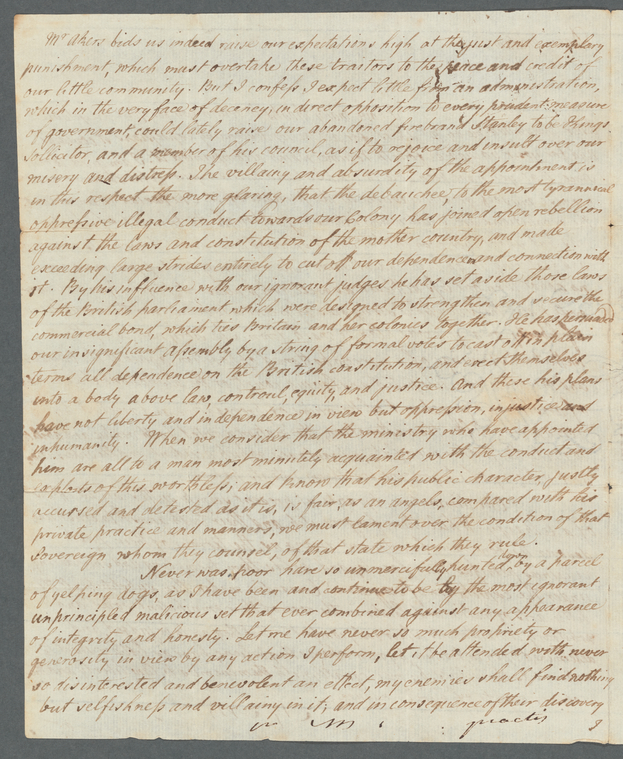 Mr Akers bids us indeed raise our expectations high at the just and exemplary
punishment, which must overtake these traitors to the peace and credit of
our little community. But I confess I expect little from an administration,
which in the very face of decency, in direct opposition to every prudent measure
of government, could lately raise our abandoned firebrand Stanley to be Kings
Solicitor, and a member of his council, as if to rejoice and insult over our
misery and distress. The villainy and absurdity of the appointment is
in this respect the more glaring, that the debauchee, to the most tyrannical
oppressive illegal conduct towards our Colony has joined open rebellion
against the laws and constitution of the mother country, and made
exceeding large strides entirely to cut off our dependence and connection with
it. By his influence with our ignorant judges he has set aside those laws
of the British parliament which were designed to strengthen and secure the
commercial bond, which ties Britain and her colonies together. He has persuaded
our insignificant assembly by a string of formal votes to cast off in plain
terms all dependence on the British constitution, and erect themselves
into a body above law, controul, equity, and justice. And these his plans
have not liberty and independence in view but oppression, injustice and
inhumanity. When we consider that the ministry who have appointed
him are all to a man most minutely acquainted with the conduct and
exploits of this worthless; and know that his public character, justly
accussed and detested as it is, is fair as an angels, compared with his
private practice and manners, we must lament over the condition of that
Sovereign whom they counsel, of that state which they rule.
Never was poor hare so unmercifully hunted down by a parcel
of yelping dogs, as I have been and continue to be by the most ignorant
unprincipled malicious set that ever combined against any appearance
of integrity and honesty. Let me have never so much propriety or
generosity in view by any action I perform, let it be attended with never
so disinterested and benevolent an effect, my enemies shall find nothing
but selfishness and villainy in it; and in consequence of their discovery